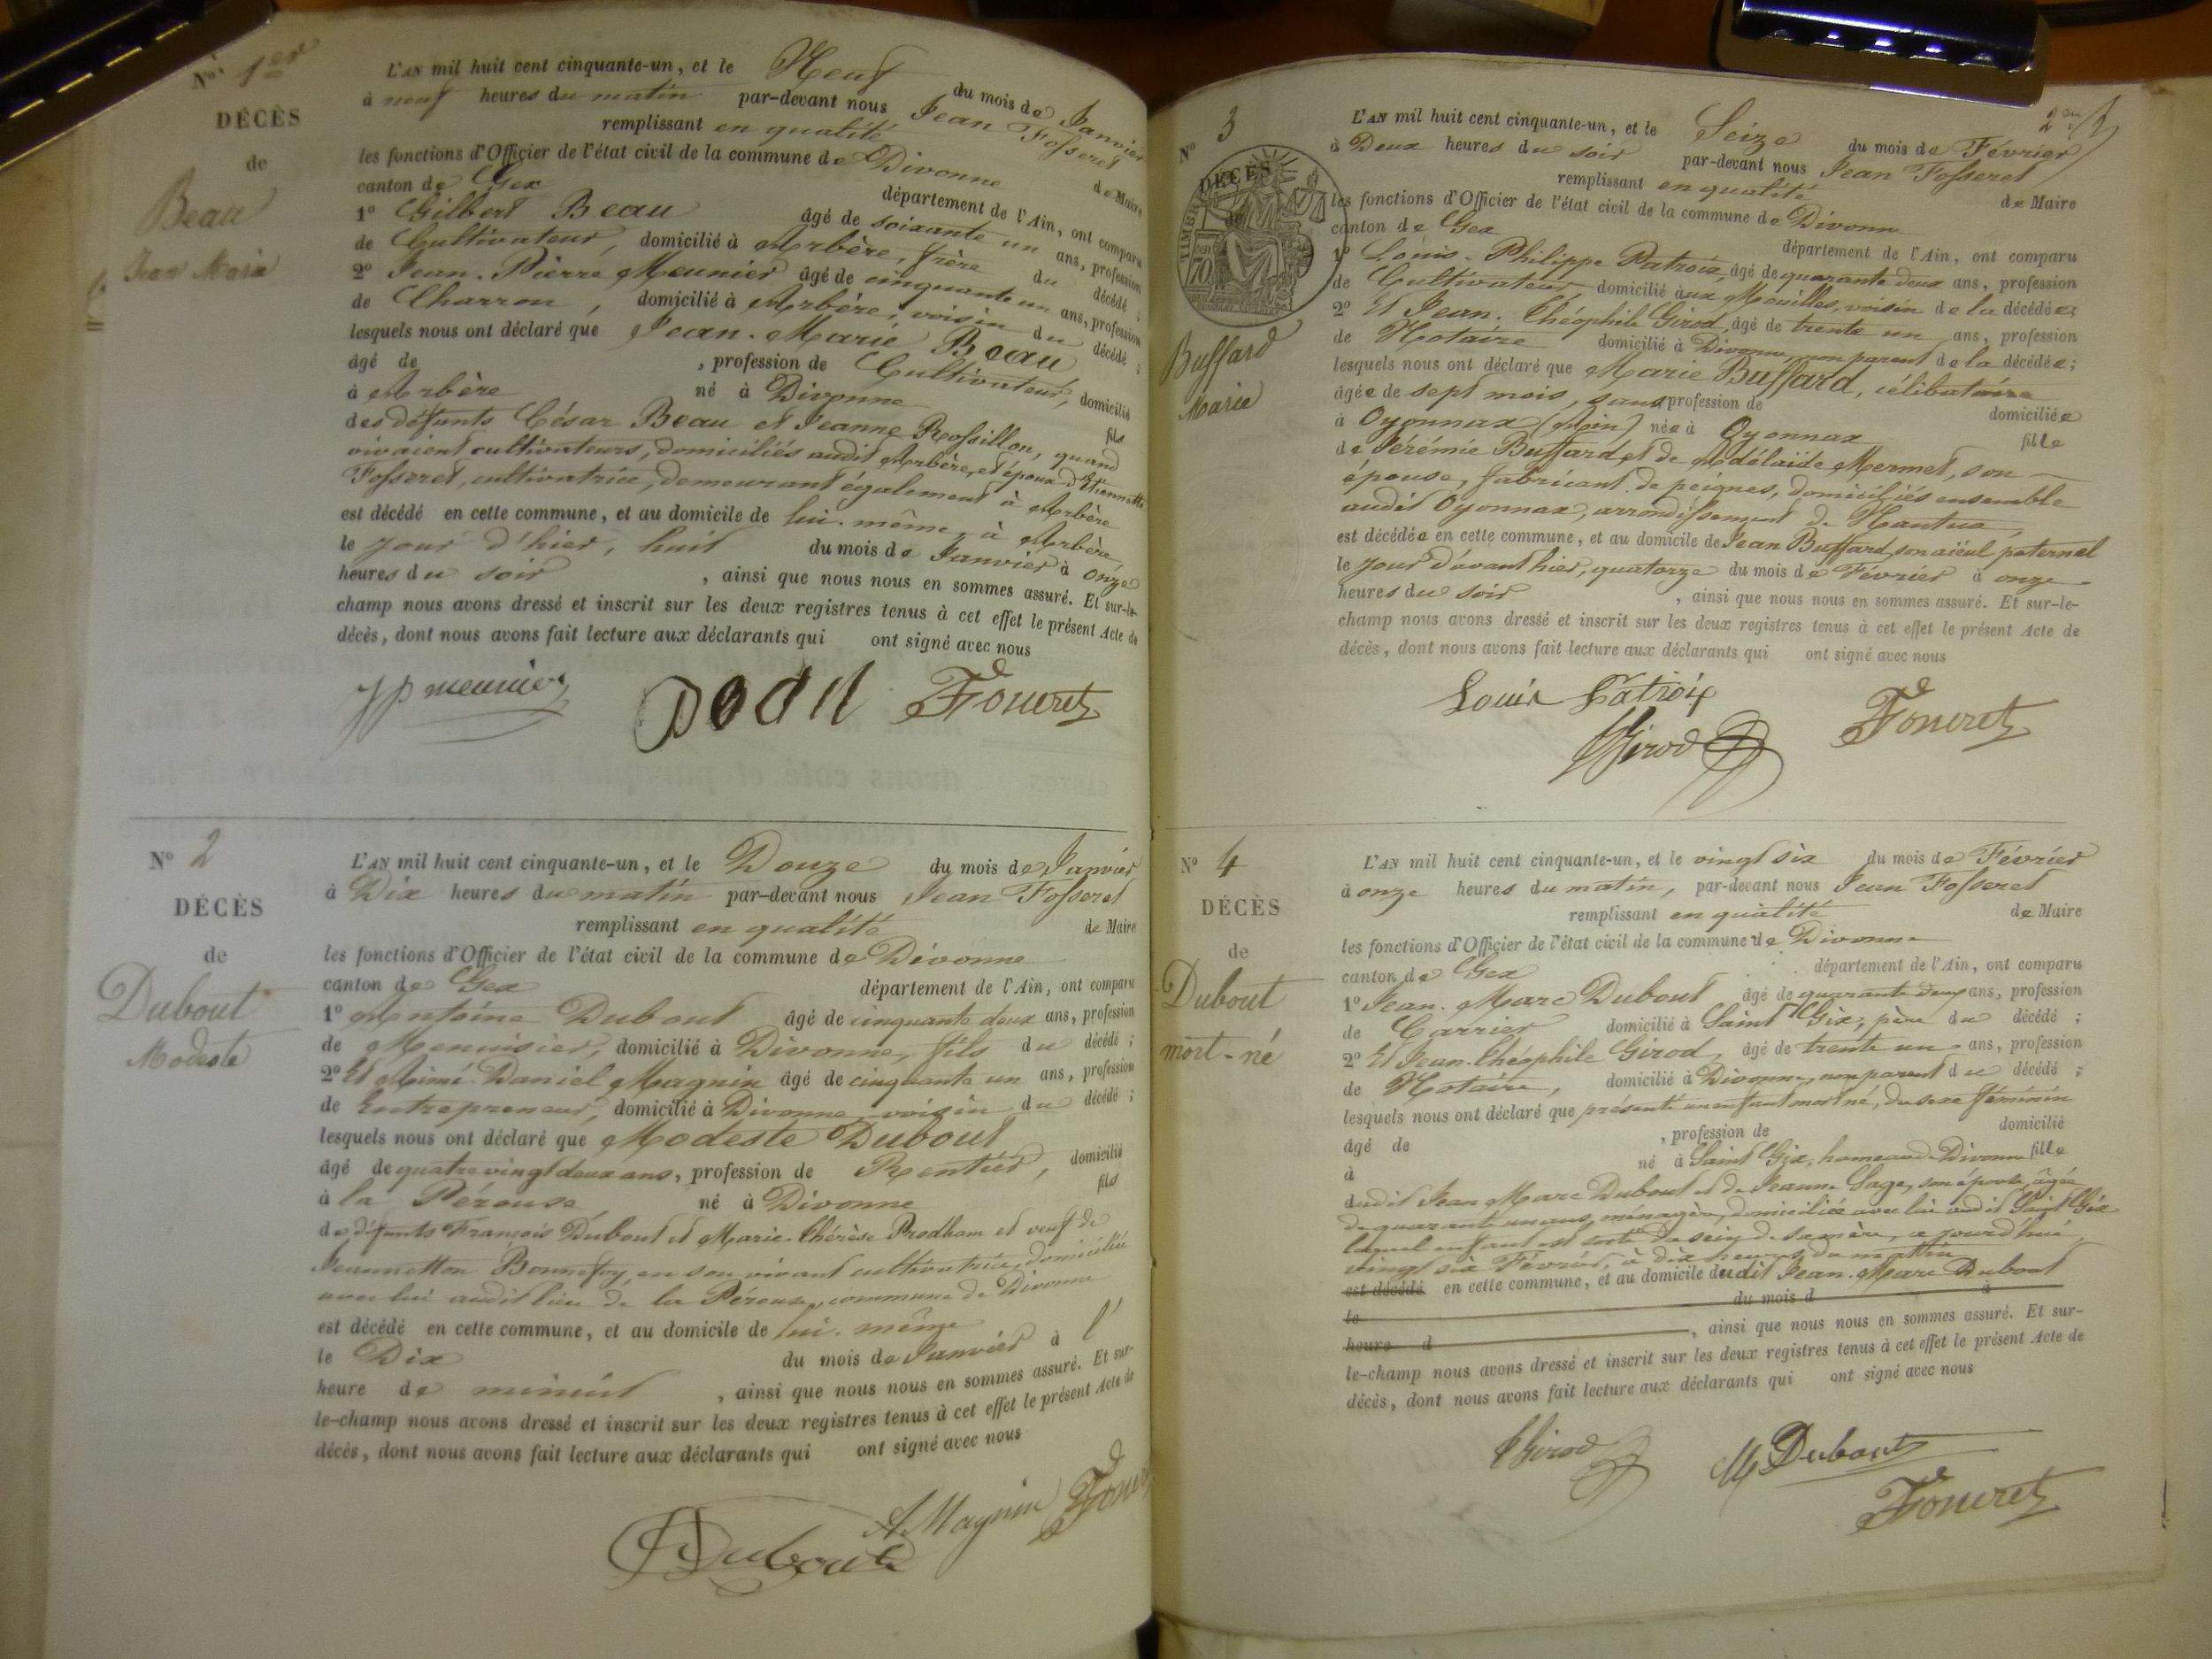 No. 1er
DÉCÈS
de
Beau
Jean Marie
L'AN mil huit cent cinquante-un, et le Neuf du mois de Janvier
à neuf heures du matin par-devant nous Jean Fosseret
remplissant en qualité de Maire
les fonctions d'Officier de l'état civil de la commune de Divonne
canton de Gex département de l'Ain, ont comparu
1º Gilbert Beau âgé de soixante un ans, profession
de Cultivateur, domicilié à Arbère, frère du décédé ;
2º Jean-Pierre Meunier âgé de cinquante un ans, profession
de Charron, domicilié à Arbère, voisin du décédé ;
lesquels nous ont déclaré que Jean-Marie Beau
âgé de , profession de Cultivateur, domicilié
à Arbère né à Divonne fils
des défunts César Beau et Jeanne Rossillon, quand
vivaient cultivateurs, domiciliés audit Arbère, et époux d'Etiennette
Fosseret, cultivatrice, demeurant également à Arbère
est décédé en cette commune, et au domicile de lui-même, à Arbère
le jour d'hier, huit du mois de Janvier à onze
heures du soir , ainsi que nous nous en sommes assuré. Et sur-le-
champ nous avons dressé et inscrit sur les deux registres tenus à cet effet le présent Acte de
décès, dont nous avons fait lecture aux déclarants qui ont signé avec nous
JP meunier Fosseret
Nº 2
DÉCÈS
de
Dubout
Modeste
L'AN mil huit cent cinquante-un, et le Douze du mois de Janvier
à Dix heures du matin par-devant nous Jean Fosseret
remplissant en qualité de Maire
les fonctions d'Officier de l'état civil de la commune de Divonne
canton de Gex département de l'Ain, ont comparu
1º Antoine Dubout âgé de cinquante deux ans, profession
de Menuisier, domicilié à Divonne, fils du décédé ;
2º Et Aimé-Daniel Magnin âgé de cinquante un ans, profession
de Entrepreneur, domicilié à Divonne, voisin du décédé ;
lesquels nous ont déclaré que Modeste Dubout
âgé de quatre vingt deux ans, profession de Rentier, domicilié
à la Pérouse né à Divonne fils
de défunts François Dubout et Marie-Thérèse Prodham et veuf de
Jeannetton Bonnefoy, en son vivant cultivatrice, domiciliée
avec lui audit lieu de la Pérouse, commune de Divonne
est décédé en cette commune, et au domicile de lui-même
le Dix du mois de Janvier à l'
heure de minuit , ainsi que nous nous en sommes assuré. Et sur-
le-champ nous avons dressé et inscrit sur les deux registres tenus à cet effet le présent Acte de
décès, dont nous avons fait lecture aux déclarants qui ont signé avec nous
Dubout A. Magnin
2e
Nº 3
DÉCÈS
de
TIMBRE
70
Buffard
Marie
L'AN mil huit cent cinquante-un, et le Seize du mois de Février
à Deux heures du soir par-devant nous Jean Fosseret
remplissant en qualité de Maire
les fonctions d'Officier de l'état civil de la commune de Divonne
canton de Gex département de l'Ain, ont comparu
1º Louis-Philippe Patroix, âgé de quarante deux ans, profession
de Cultivateur domicilié aux Mouilles, voisin de la décédée;
2º Et Jean-Théophile Girod, âgé de trente un ans, profession
de Notaire domicilié à Divonne, non parent de la décédée;
lesquels nous ont déclaré que Marie Buffard, célibataire
âgée de sept mois, sans profession de domiciliée
à Oyonnax (Ain) née à Oyonnax fille
de Jérémie Buffard et de Adélaïde Mermet, son
épouse, fabricant de peignes, domiciliés ensemble
audit Oyonnax, arrondissement de Nantua,
est décédée en cette commune, et au domicile de Jean Buffard, son aïeul paternel
le jour d'avant hier, quatorze du mois de Février à onze
heures du soir , ainsi que nous nous en sommes assuré. Et sur-le-
champ nous avons dressé et inscrit sur les deux registres tenus à cet effet le présent Acte de
décès, dont nous avons fait lecture aux déclarants qui ont signé avec nous
Louis Patroix
Girod Fosseret
Nº 4
DÉCÈS
de
Dubout
mort-né
L'AN mil huit cent cinquante-un, et le vingt six du mois de Février
à onze heures du matin, par-devant nous Jean Fosseret
remplissant en qualité de Maire
les fonctions d'Officier de l'état civil de la commune de Divonne
canton de Gex département de l'Ain, ont comparu
1º Jean-Marc Dubout âgé de quarante deux ans, profession
de Carrier domicilié à Saint Gix, père du décédé ;
2º Et Jean-Théophile Girod, âgé de trente un ans, profession
de Notaire, domicilié à Divonne, non parent du décédé ;
lesquels nous ont déclaré que présenté un enfant mort né, du sexe féminin
âgé de , profession de domicilié
à né à Saint Gix, hameau de Divonne fille
dudit Jean Marc Dubout et de Jeanne Sage, son épouse, âgée
de quarante un ans, ménagère, domiciliée avec lui audit Saint Gix
lequel enfant est sorti du sein de sa mère, ce jourd'hui,
vingt six Février, à dix heures du matin
est décédé en cette commune, et au domicile dudit Jean-Marc Dubout
le du mois d à
heure d , ainsi que nous nous en sommes assuré. Et sur-
le-champ nous avons dressé et inscrit sur les deux registres tenus à cet effet le présent Acte de
décès, dont nous avons fait lecture aux déclarants qui ont signé avec nous
Girod M Dubout
Fosseret